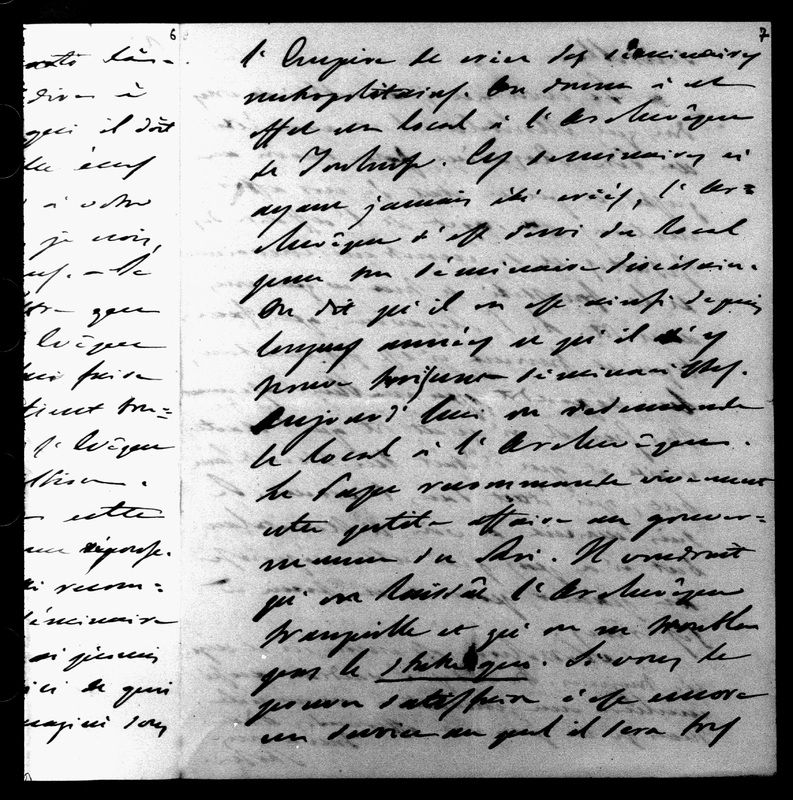 6
dire à
qui il doit
à votre
je crois,
que
l'Évêque
faire
tient tou=
l'Évêque
cette
réponse.
recom=
séminaire
si jamais
ici de quoi
sous
7
l'Empire de créer des séminaires
métropolitains. On donna à cet
effet un local à l'Archevêque
de Toulouse. Ces séminaires n'
ayant jamais été créés, l'Ar=
chevêque s'est servi du local
pour son séminaire diocésain.
On dit qu'il en est ainsi depuis
longues années et qu'il s'y
trouve séminaristes.
Aujourd'hui on redemande
le local à l'Archevêque.
Le Pape recommande vivement
cette petite affaire au gouver=
nement du Roi. Il voudrait
qu'on laissât l'Archevêque
tranquille et qu'on ne troublât
pas le statu quo. Si vous le
pouvez satisfaire c'est encore
un service au quel il sera très